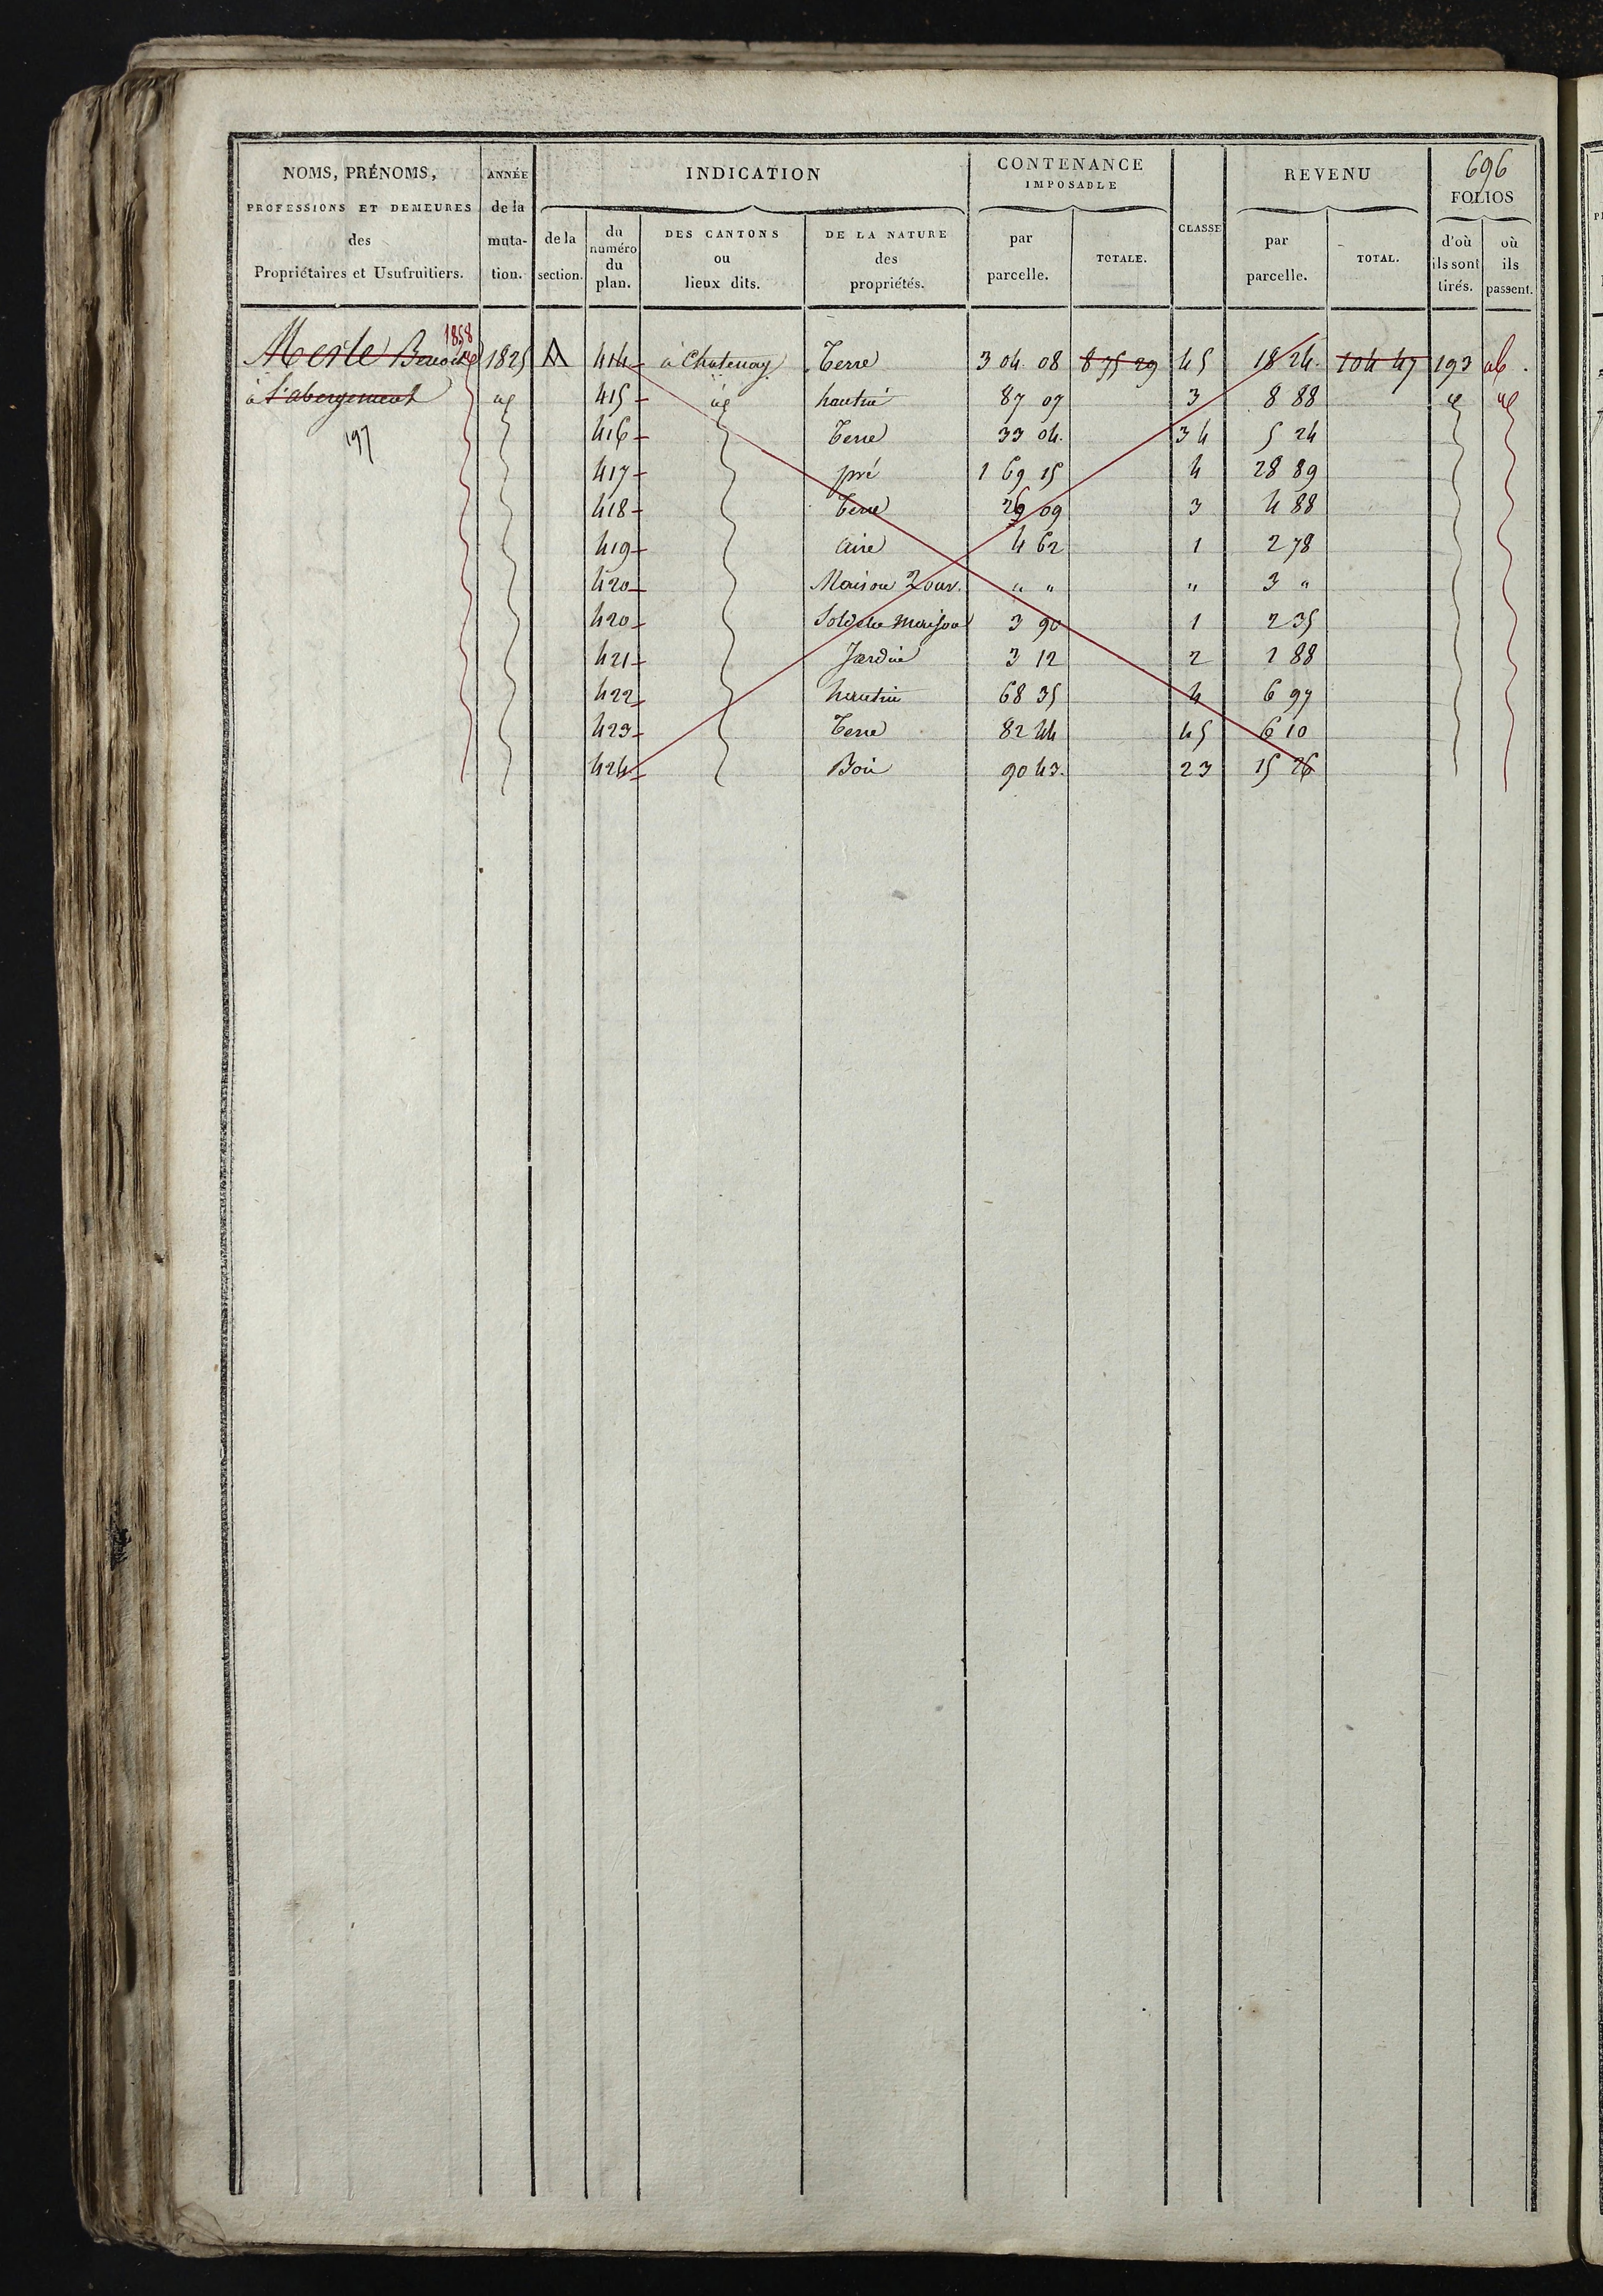 696
NOMS, PRÉNOMS,
PROFESSIONS ET DEMEURES
des
Propriétaires et Usufruitiers.
ANNÉE
de la
muta-
tion.
INDICATION
de la
section.
du
numéro
du
plan.
DES CANTONS
ou
lieux dits.
DE LA NATURE
des
propriétés.
CONTENANCE
IMPOSABLE
par
parcelle.
TOTALE.
CLASSE
REVENU
par
parcelle.
TOTAL.
FOLIOS
d'où
ils sont
tirés.
où
ils
passent.
1858
Merle Benoit 1825 A 414 à Chatenay Terre 3 04 08 8 75 29 45 18 24 104 47 193 ab
à l'abergement id 415 id hautin 87 07 3 8 88 id id
197 416 Terre 33 04 34 5 24
417 pré 1 69 15 4 28 89
418 Terre 29 09 3 4 88
419 aire 4 62 1 2 78
420 Maison 2 ouv. " " " 3 "
420 Sol de la maison 3 90 1 2 35
421 Jardin 3 12 2 1 88
422 hautin 68 35 4 6 97
423 Terre 82 44 45 6 10
424 Bois 90 43 23 15 26